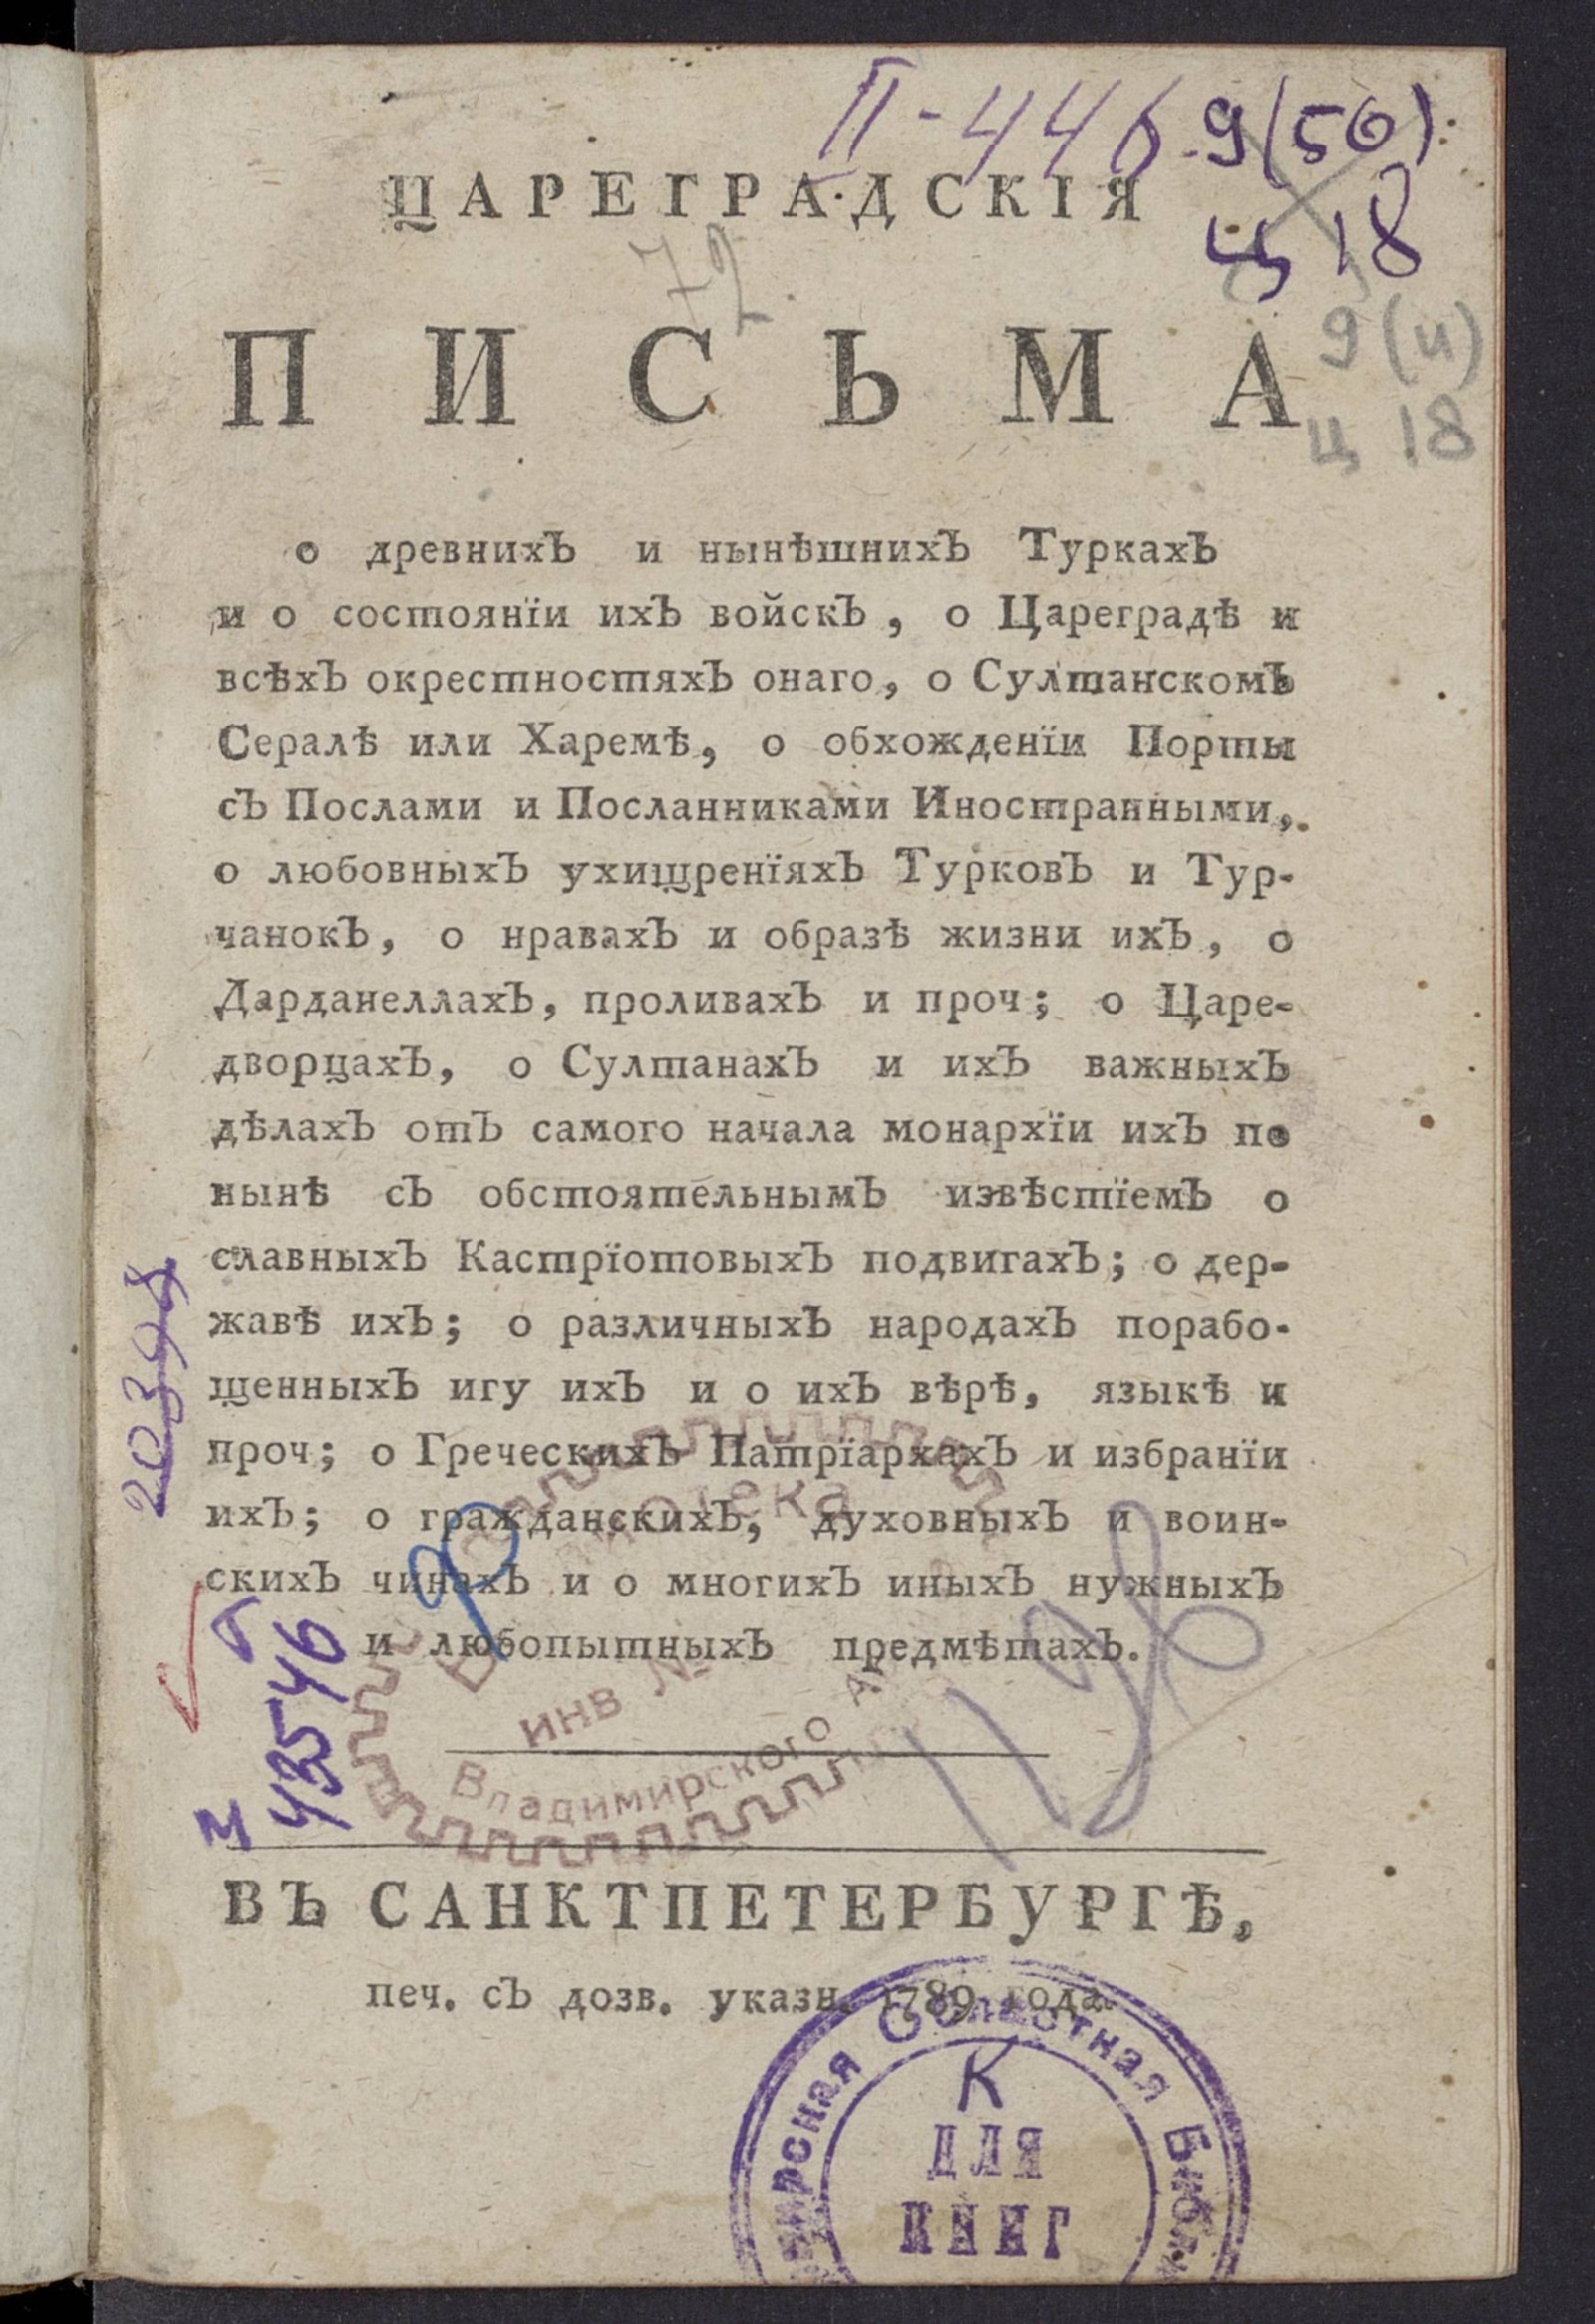 II-446. 9(56)
ц 18
ЦАРЕГРАДСКІЯ
72
ПИСЬМА
9(и)
ц 18
о древнихЪ и нынѣшнихЪ ТуркахЪ
и о состоянїи ихЪ войскЪ, о Цареградѣ и
всѣхЪ окрестностяхЪ онаго, о СултанскомЪ
Сералѣ или Харемѣ, о обхожденїи Порты
сЪ Послами и Посланниками Иностранными,
о любовныхЪ ухищренїяхЪ ТурковЪ и Тур-
чанокЪ, о нравахЪ и образѣ жизни ихЪ, о
ДарданеллахЪ, проливахЪ и проч; о Царе-
дворцахЪ, о СултанахЪ и ихЪ важныхЪ
дѣлахЪ отЪ самого начала монархїи ихЪ по
нынѣ сЪ обстоятельнымЪ извѣстїемЪ о
славныхЪ КастрїотовыхЪ подвигахЪ; о дер-
жавѣ ихЪ; о различныхЪ народахЪ порабо-
щенныхЪ игу ихЪ и о ихЪ вѣрѣ, языкѣ и
проч; о ГреческихЪ ПатрїархахЪ и избранїи
ихЪ; о гражданскихЪ, духовныхЪ и воин-
скихЪ чинахЪ и о многихЪ иныхЪ нужныхЪ
и любопытныхЪ предмѣтахЪ.
инв №
Владимирского
43546
ВЪ САНКТПЕТЕРБУРГѢ,
печ. сЪ дозв. указн. 1789 года.
Областная
К
ДЛЯ
КНИГ